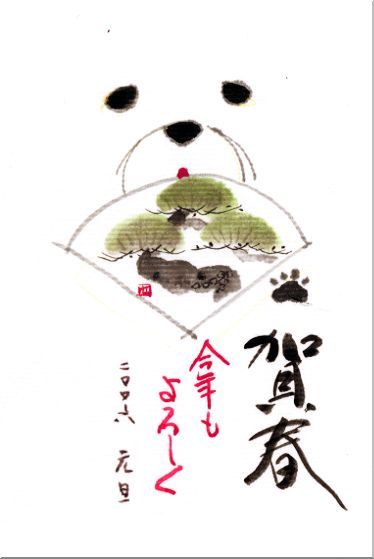 賀春
今年も
よろしく
二〇〇六 元旦